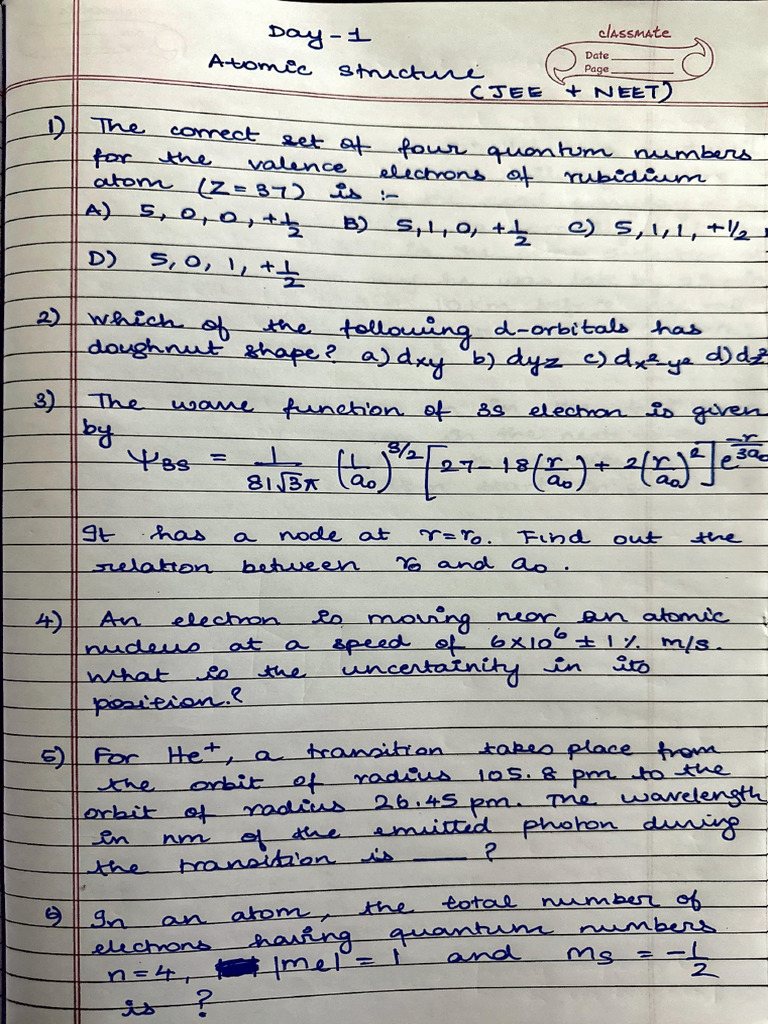 Day-1
classmate
Date
Page
Atomic structure
(JEE + NEET)
1) The correct set of four quantum numbers
for the valence electrons of rubidium
atom (Z=37) is :-
A) 5, 0, 0, +1/2 B) 5, 1, 0, +1/2 C) 5, 1, 1, +1/2,
D) 5, 0, 1, +1/2
2) which of the following d-orbitals has
doughnut shape? a) dxy b) dyz c) dx²-y² d) dz²
3) The wave function of 3s electron is given
by
Ψ3s = 1/(81√3π) (1/a₀)^3/2 [27-18(r/a₀)+2(r/a₀)²] e^(-r/3a₀)
It has a node at r=r₀. Find out the
relation between r₀ and a₀.
4) An electron is moving near an atomic
nucleus at a speed of 6×10⁶ ± 1% m/s.
What is the uncertainity in its
position.?
5) For He⁺, a transition takes place from
the orbit of radius 105.8 pm to the
orbit of radius 26.45 pm. The wavelength
in nm of the emitted photon during
the transition is ___ ?
6) In an atom, the total number of
electrons having quantum numbers
n=4, |me|=1 and ms = -1/2
is ?